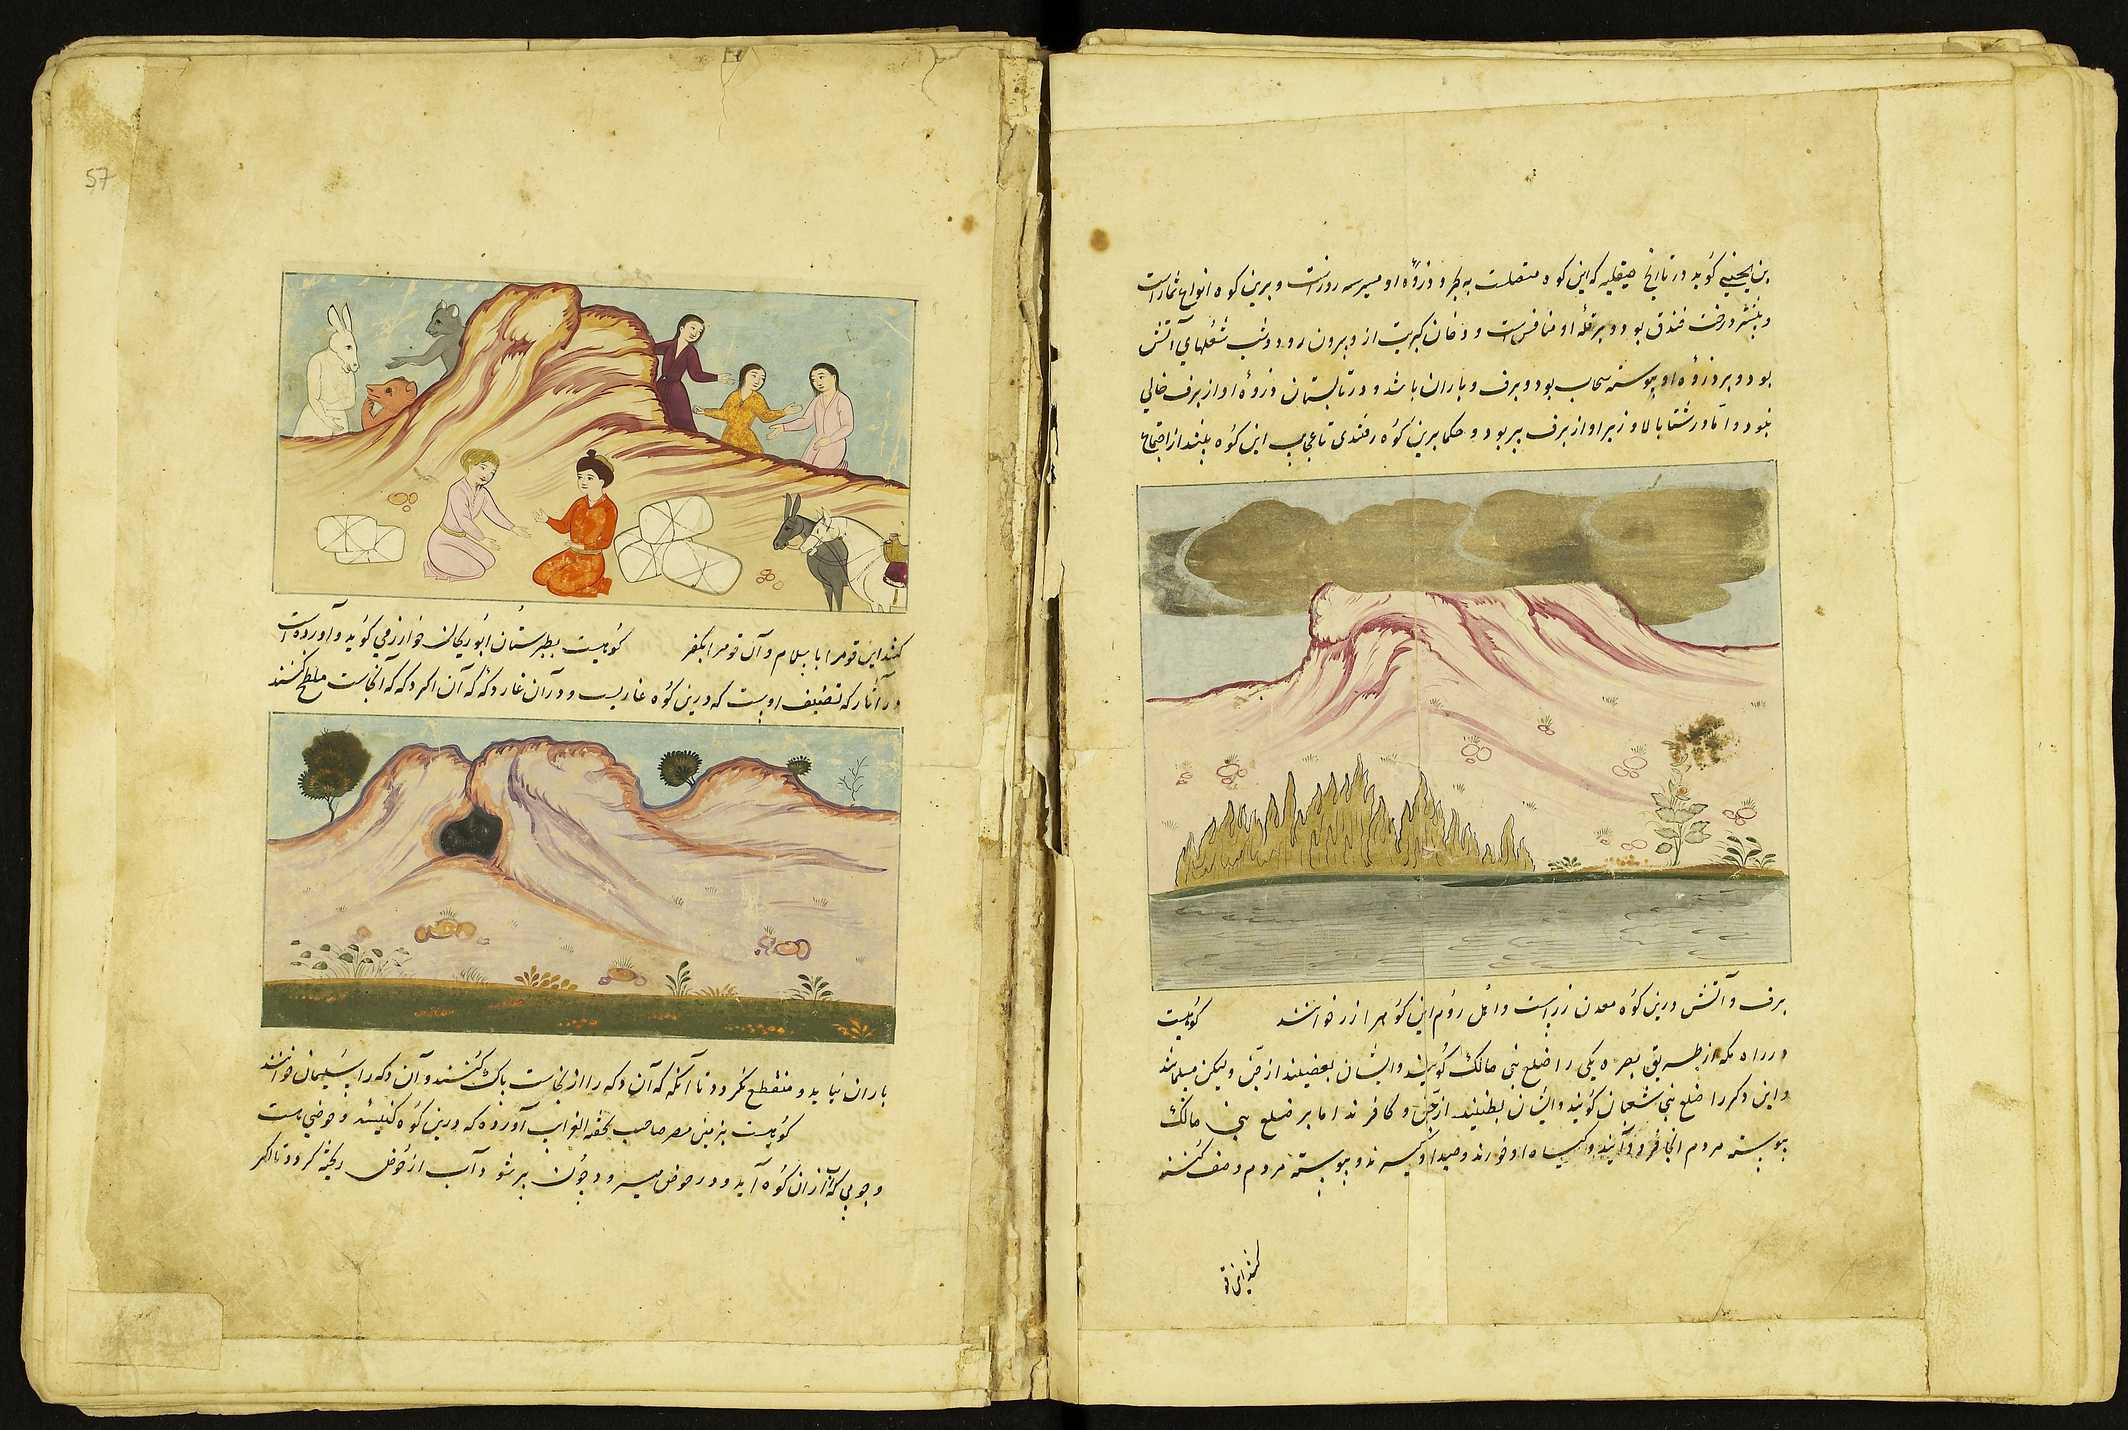 گوید در تاریخ صقلیه که این کوه متصلست به بحر و دزوهٔ او مسیر سه روزست و برین کوه انواع ثمار است
و بیشتر درخت فندق بود و بر قلهٔ او منافس است و دخان کبریت از و بیرون رود و شب شعلهای آتش
بود و بر ذروهٔ او پیوسته سحاب بود و برف و باران باشد و در تابستان ذروهٔ او از برف خالی
نبود و اما در شتا بالا و زیر او از برف پر بود و حکما برین کوه رفتندی تا عجایب این کوه بینند از اجتماع
برف و آتش و درین کوه معدن زر است و اهل روم این کوه را زر خوانند کوهیست
در راه مکه از طریق بصره یکی را ضلع بنی مالک گویند و ایشان بعضیند از جن ولیکن مسلمانند
و این دکر را ضلع بنی شعبان گویند و ایشان بطنیند از جن و کافرند اما بر ضلع بنی مالک
پیوسته مردم آنجا فرود آیند و گیاه او خورند و صید او گیرند و پیوسته مردم وصف کنند
کنند این قو
کنند این قوم را باسلام و آن قوم را بکفر کوهیست بطبرستان ابوریحان خوارزمی گوید و آورده است
در آثار که تصنیف اوست که درین کوه غاریست و در آن غار دکه که آن اگر دکه که آنجاست ملطخ کنند
باران بیاید و منقطع نکردد تا آنکه که آن دکه را از نجاست پاک کنند و آن دکه را سلیمان خوانند
کوهیست بزمین مصر صاحب تحفه الغرایب آورده که درین کوه کنیسه و حوضی است
و جویی که از آن کوه آید و در حوض میرود چون پر شود آب از حوض ریخته کردد تا اگر
57